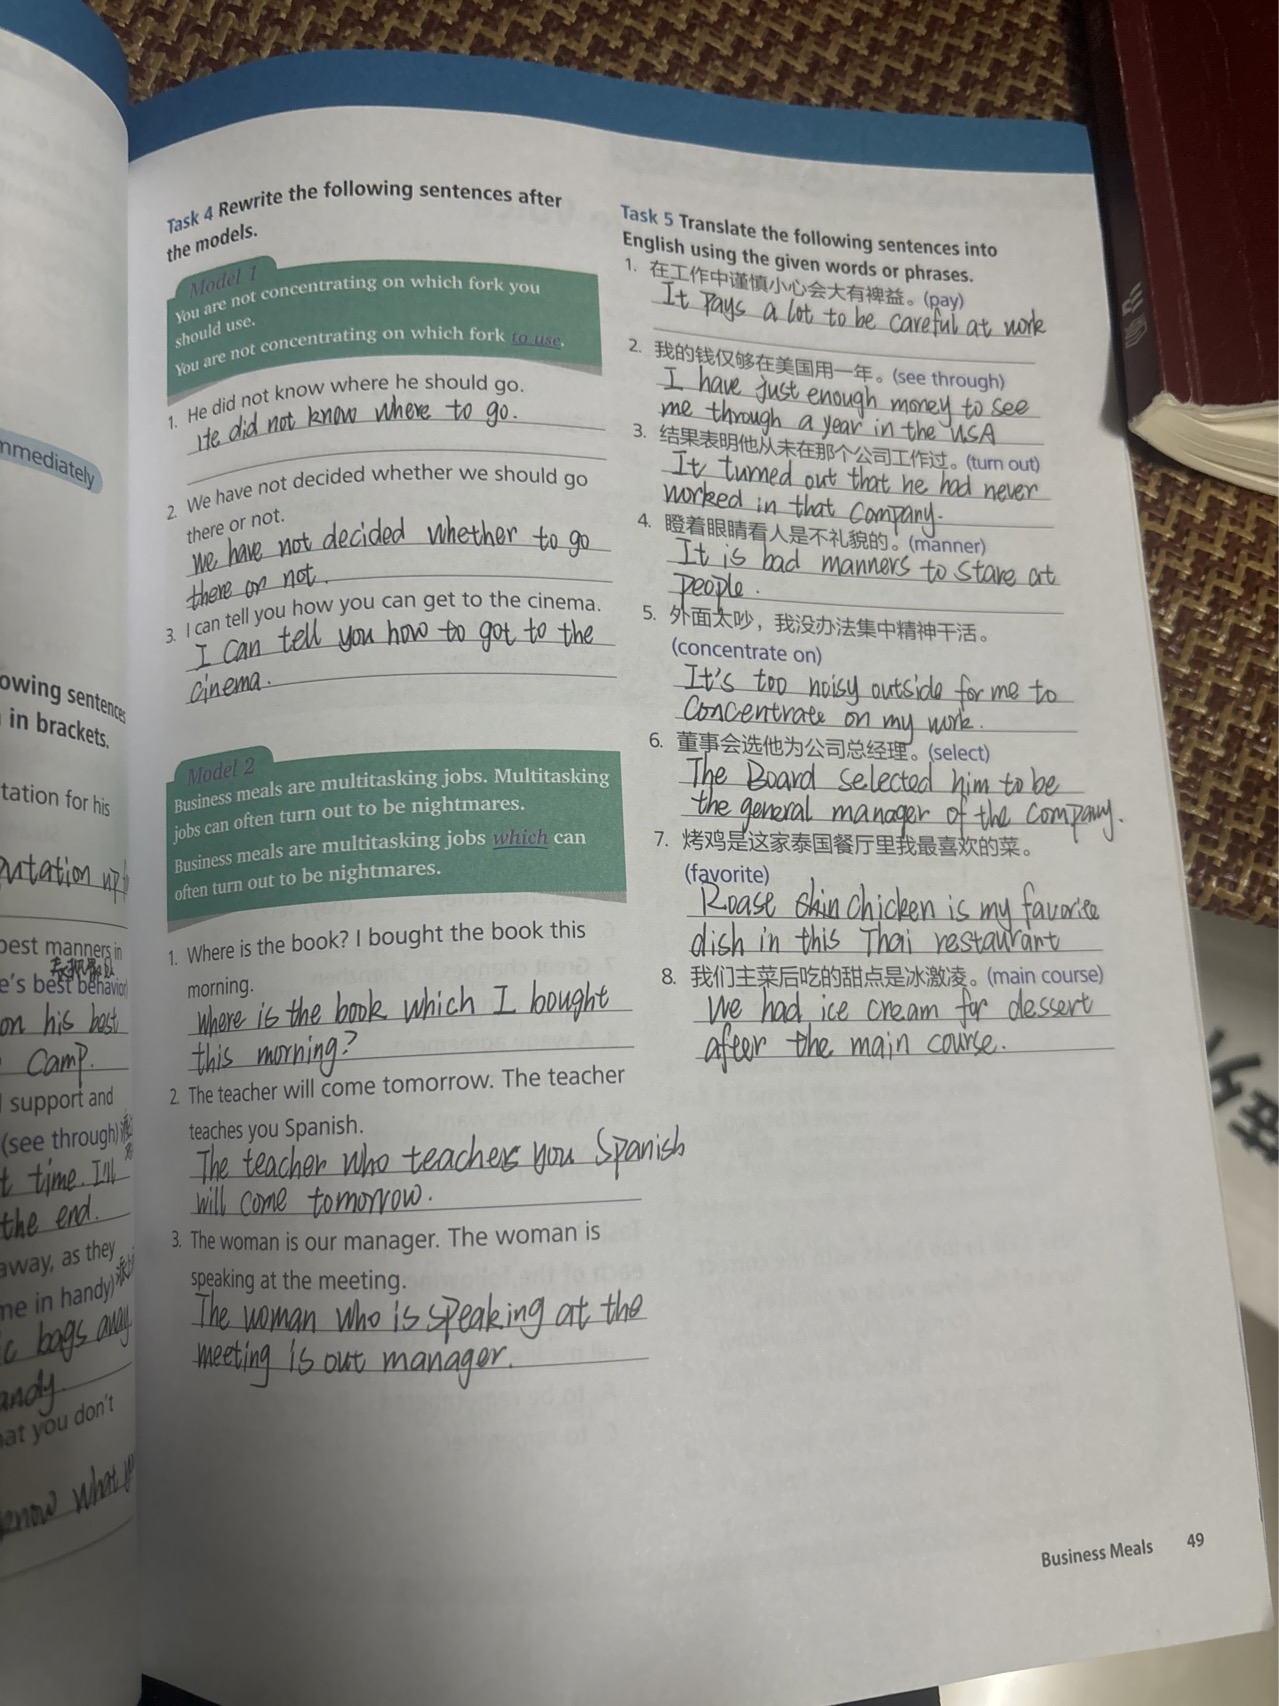 mmediately
owing sentences
in brackets.
tation for his
utation up
best manners in
e's best behavior)
on his best
camp.
support and
(see through)
t time. I'll
the end.
away, as they
me in handy)
c bags away
andy.
hat you don't
know what
Task 4 Rewrite the following sentences after
the models.
Model 1
You are not concentrating on which fork you
should use.
You are not concentrating on which fork to use.
1. He did not know where he should go.
He did not know where to go.
2. We have not decided whether we should go
there or not.
We have not decided whether to go
there or not.
3. I can tell you how you can get to the cinema.
I can tell you how to got to the
cinema.
Model 2
Business meals are multitasking jobs. Multitasking
jobs can often turn out to be nightmares.
Business meals are multitasking jobs which can
often turn out to be nightmares.
1. Where is the book? I bought the book this
morning.
Where is the book which I bought
this morning?
2. The teacher will come tomorrow. The teacher
teaches you Spanish.
The teacher who teaches you Spanish
will come tomorrow.
3. The woman is our manager. The woman is
speaking at the meeting.
The woman who is speaking at the
meeting is out manager.
Task 5 Translate the following sentences into
English using the given words or phrases.
1. 在工作中谨慎小心会大有裨益。(pay)
It pays a lot to be careful at work
2. 我的钱仅够在美国用一年。(see through)
I have just enough money to see
me through a year in the USA
3. 结果表明他从未在那个公司工作过。(turn out)
It turned out that he had never
worked in that company.
4. 瞪着眼睛看人是不礼貌的。(manner)
It is bad manners to stare at
people.
5. 外面太吵，我没办法集中精神干活。
(concentrate on)
It's too noisy outside for me to
concentrate on my work.
6. 董事会选他为公司总经理。(select)
The Board selected him to be
the general manager of the company.
7. 烤鸡是这家泰国餐厅里我最喜欢的菜。
(favorite)
Roase chicken is my favorite
dish in this Thai restaurant
8. 我们主菜后吃的甜点是冰激凌。(main course)
We had ice cream for dessert
after the main course.
Business Meals 49